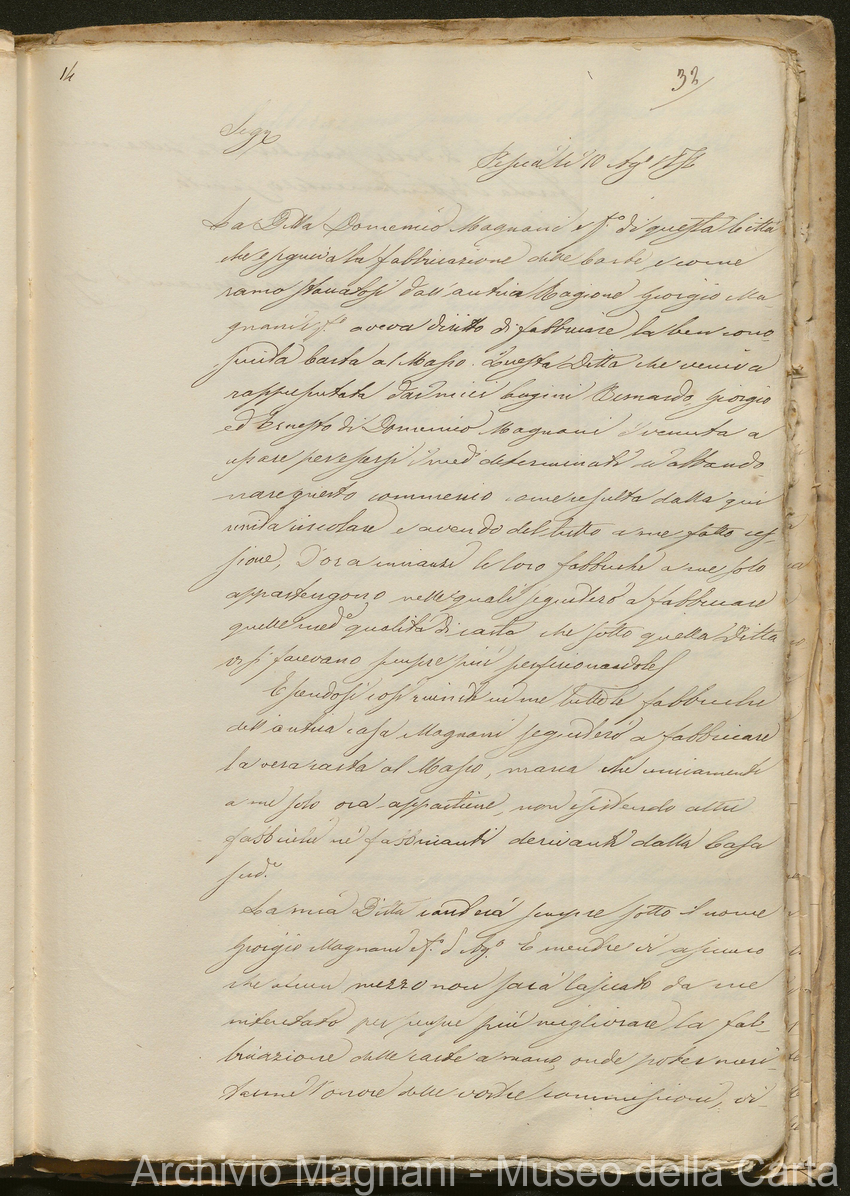 14
32
Sigr
Pescia li 10 Ago 18
La Ditta Domenico Magnani e fo di questa Città
che eseguiva la fabbricazione delle Carte, e come
ramo staccatosi dall'antica Ragione Giorgio Ma-
gnani fo aveva diritto di fabbricare la ben cono-
sciuta Carta al Masso. Questa Ditta che veniva
rappresentata dai miei Cugini Bernardo, Giorgio
ed Ernesto di Domenico Magnani è venuta a
cessare per essersi i medi determinati ad abbando-
nare questo commercio come resulta dalla qui
unita circolare e avendo del tutto a me fatto ces-
sione, d'ora innanzi le loro fabbriche a me solo
appartengono nelle quali seguiterò a fabbricare
quelle mede qualità di carta che sotto quella Ditta
vi si facevano sempre più perfezionandole
Essendosi così riunite in me tutte le fabbriche
dell'antica casa Magnani seguiterò a fabbricare
la vera carta al Masso, marca che unicamente
a me solo ora appartiene, non esistendo altre
fabbriche nè fabbricanti derivanti dalla Casa
sudа
La mia Ditta sempre sotto il nome
Giorgio Magnani fo d Ago E mentre vi assicuro
che alcun mezzo non sarà lasciato da me
intentato per sempre più migliorare la fab-
bricazione delle carte a mano, onde poter meri-
tarmi l'onore delle vostre commissioni, vi-
Archivio Magnani - Museo della Carta